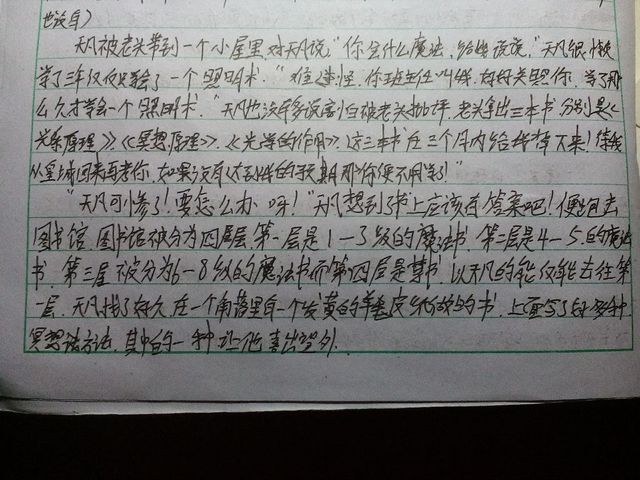 也没有）
天凡被老头带到一个小屋里,对天凡说"你会什么魔法,给我说说,"天凡很惭
学了三年仅仅只会了一个照明术."难道怪,你班主任叫我好好关照你,学了那
么久才学会一个照明术."天凡也没有多说害怕被老头批评.老头拿出三本书,分别是《
光系原理》《冥想原理》.《光学的作用》.这三本书在三个月内给我背下来!待我
从皇城回来再考你,如果没有达到我的预期那你便不用学了!"
"天凡可惨了!要怎么办呀!"天凡想到了书上应该有答案吧!便跑去
图书馆.图书馆被分为四层.第一层是1-3级的魔法书.第二层是4-5.的魔法
书.第三层被分为6-8级的魔法书而第四层是禁书.以天凡的能仅能去往第
一层.天凡找了好久,在一个角落里有一个发黄的羊皮纸做的书.上面写了好多种
冥想法方法,其中的一种让他喜出望外.